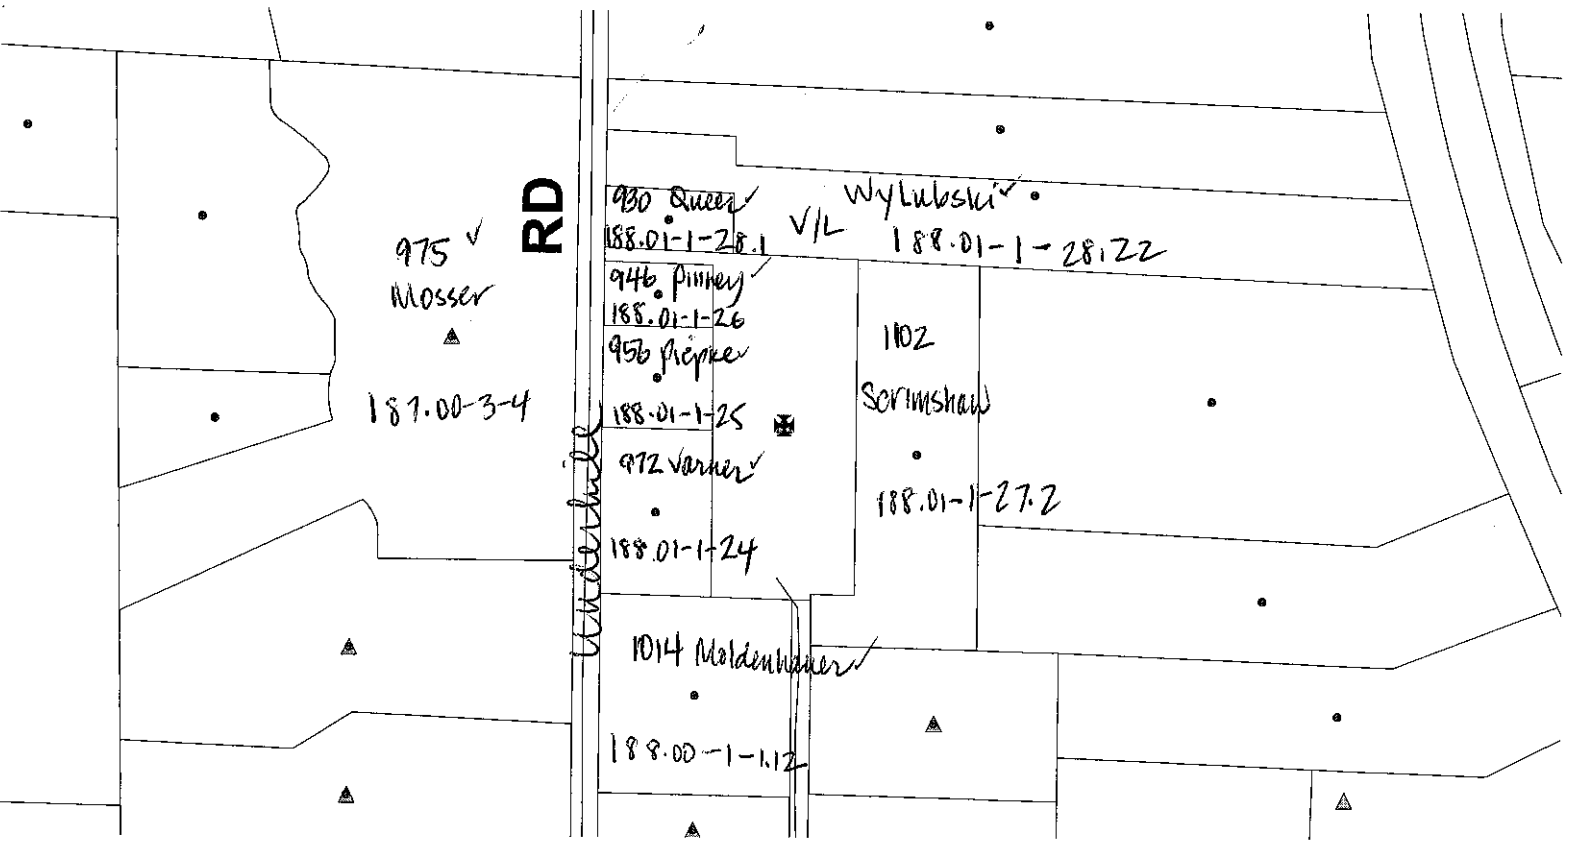 RD
Underhill
975 ✓
Mosser
187.00-3-4
930 Queer ✓
188.01-1-28.1
V/L
Wylubski ✓
188.01-1-28.22
946 Pinney ✓
188.01-1-26
956 Piepke ✓
188.01-1-25
972 Varner ✓
188.01-1-24
1102
Scrimshaw
188.01-1-27.2
1014 Moldenhauer ✓
188.00-1-1.12